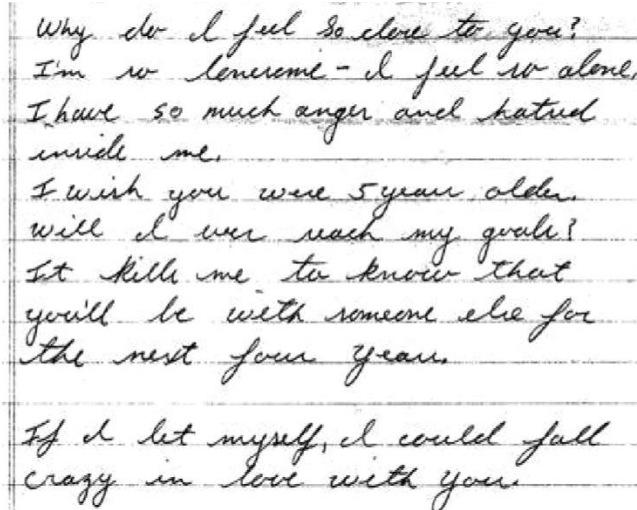 Why do I feel so close to you?
I'm so lonesome - I feel so alone.
I have so much anger and hatred
inside me.
I wish you were 5 years older.
Will I ever reach my goals?
It kills me to know that
you'll be with someone else for
the next four years.
If I let myself, I could fall
crazy in love with you.